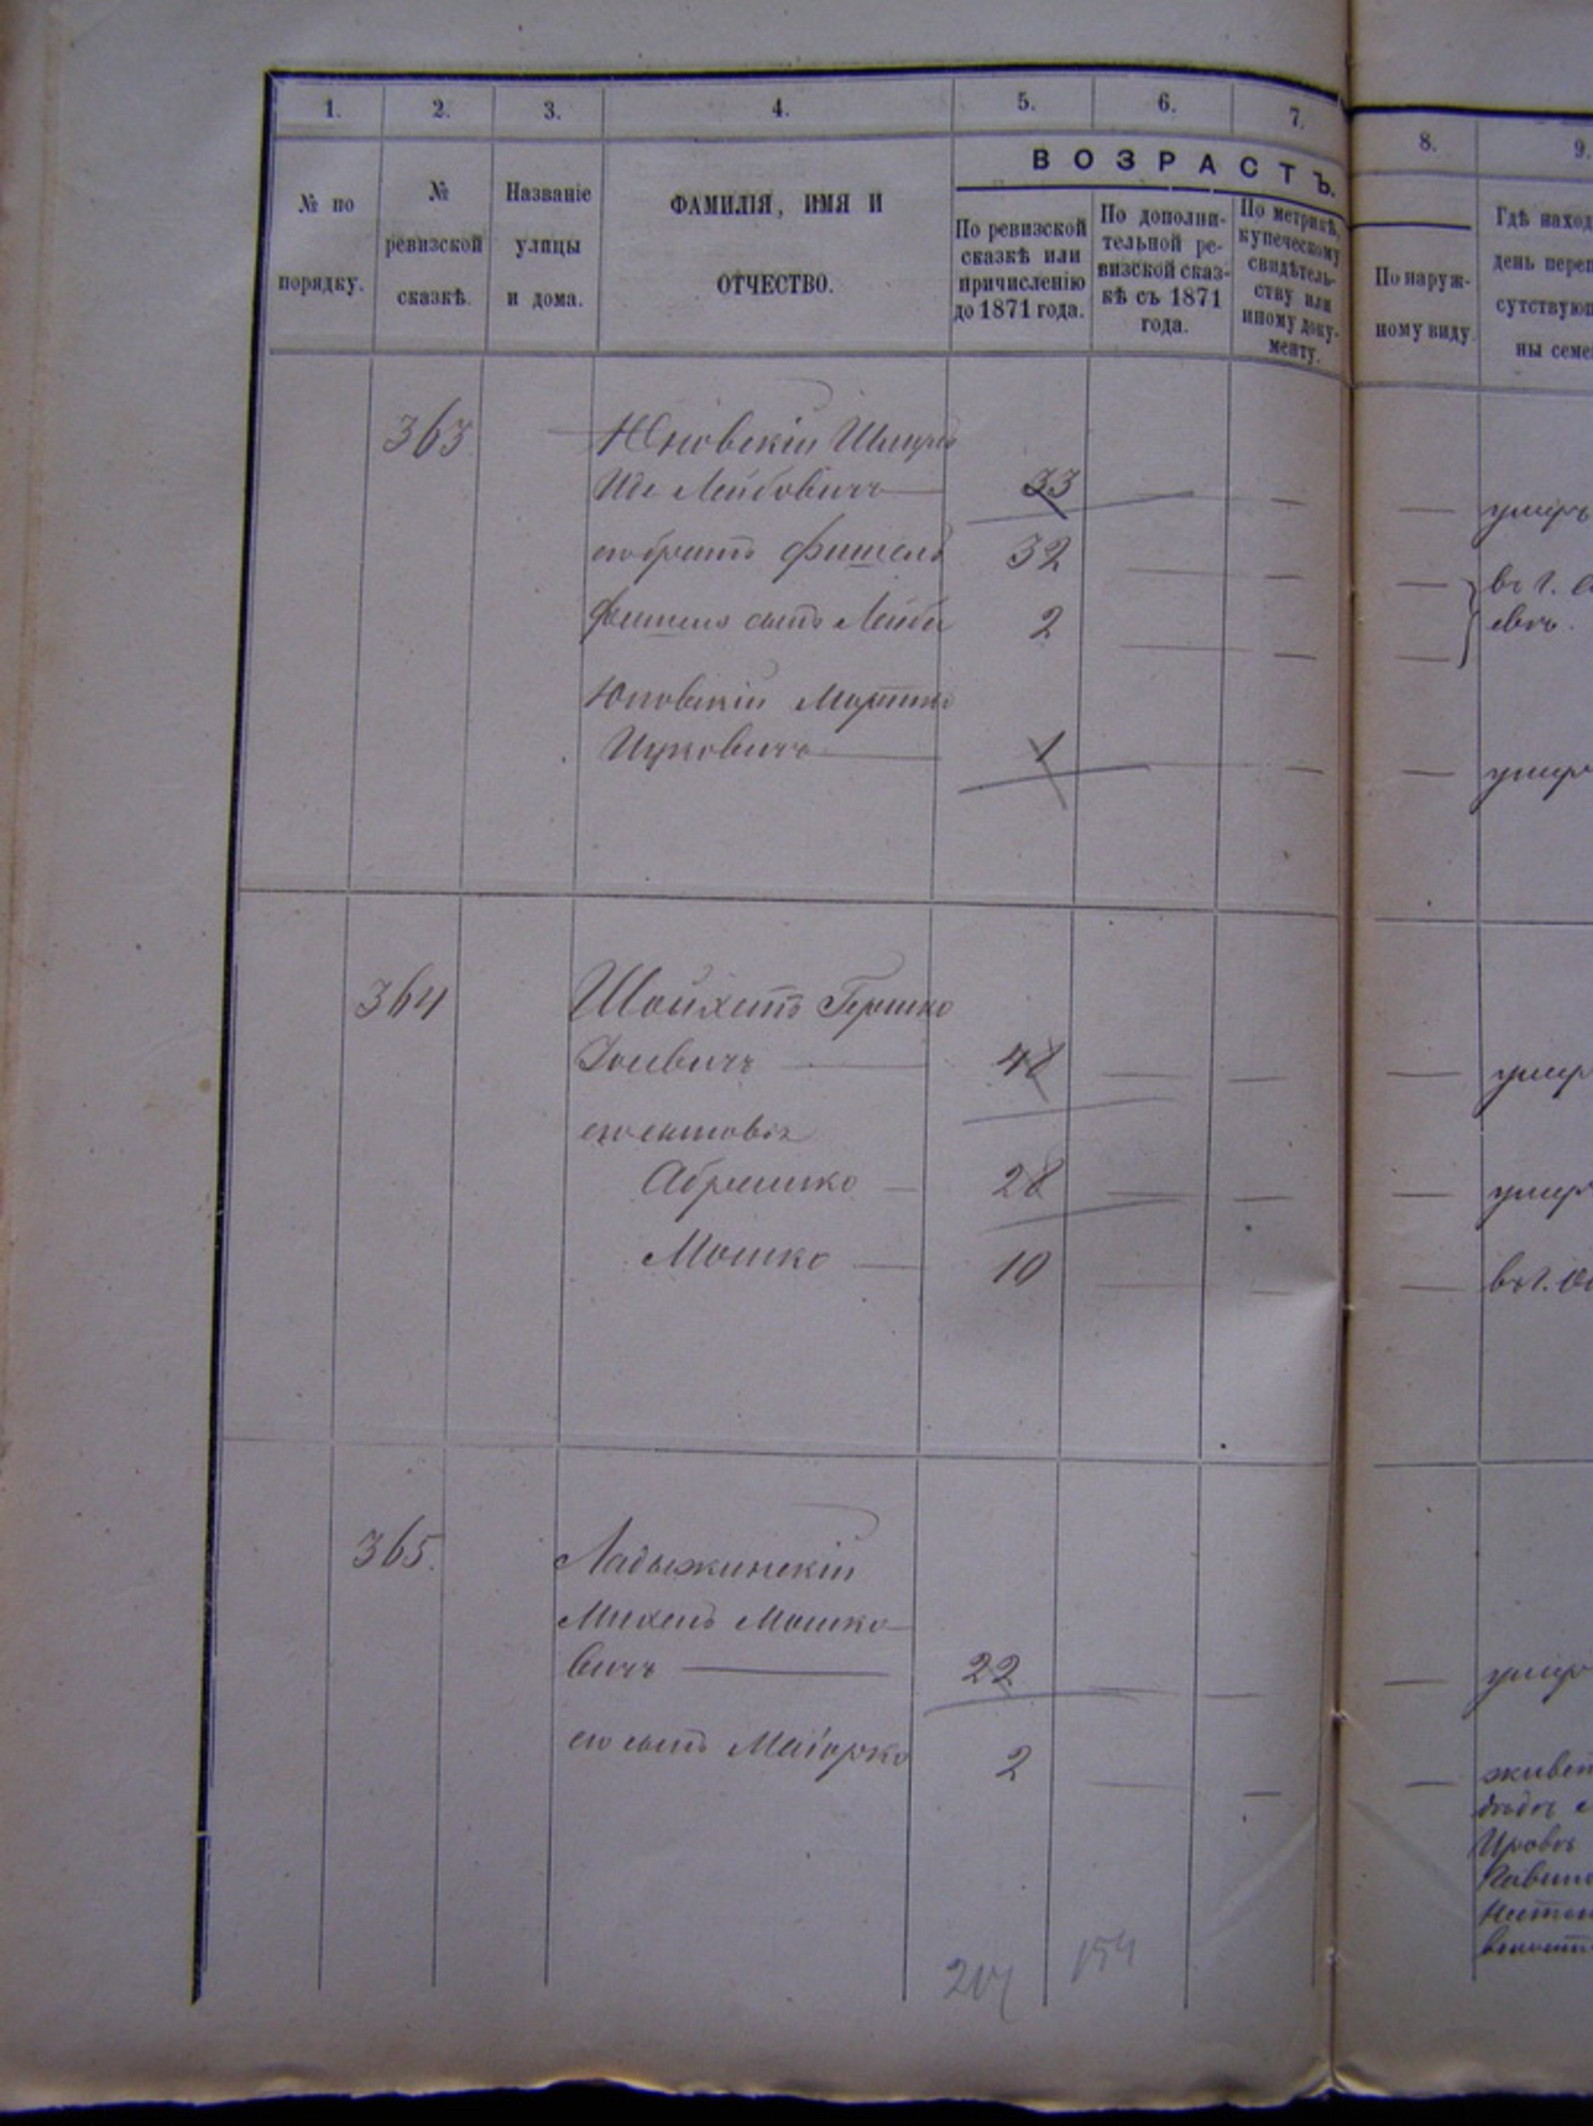 1. 2. 3. 4. 5. 6. 7. 8. 9.
№ по порядку.
№ ревизской сказкѣ.
Названіе улицы и дома.
ФАМИЛІЯ, ИМЯ И ОТЧЕСТВО.
ВОЗРАСТЪ.
По ревизской сказкѣ или причисленію до 1871 года.
По дополни-
тельной ре-
визской сказ-
кѣ съ 1871
года.
По метрикѣ,
купеческому
свидѣтель-
ству или
иному доку-
менту.
По наруж-
ному виду.
Гдѣ наход
день переп
сутствующ
ны семе
363 Юновскій Шмуль
Иде Лейбовичъ — 33 — — — умеръ
его братъ Фишель 32 — — — въ г.
Фишеля сынъ Лейба 2 — — —
Юновскій
Ицковичъ — 1 — — — умер
364 Шойхетъ Гершко
48 — — — умер
его сыновья
Абрамко — 28 — — — умер
Мошко — 10 — — — въ г.
365. Ладыжинскій
Михель Мошко-
вичъ — 22 — — — умер
его сынъ Маіорко 2 — — — живет
204 154